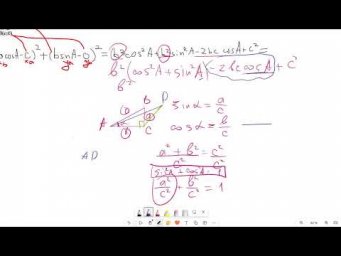 (bcosA-c)² + (bsinA-0)² = b²cos²A + b²sin²A - 2bc cosA + c² =
b²(cos²A + sin²A) - 2bc cosA + c
b²
B D
A b C
sinα = a/c
cosα = b/c
AD
a² + b² / c² = c²/c²
sin²α + cos²α = 1
a²/c² + b²/c² = 1